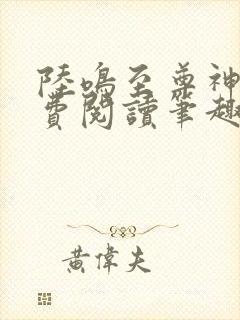 陸鳴至尊神
費閱讀筆趣
黃偉夫